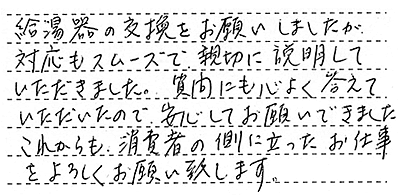 給湯器の交換をお願いしましたが
対応もスムーズで親切に説明して
いただきました。質問にも心よく答えて
いただいたので安心してお願いできました
これからも、消費者の側に立ったお仕事
をよろしくお願い致します。